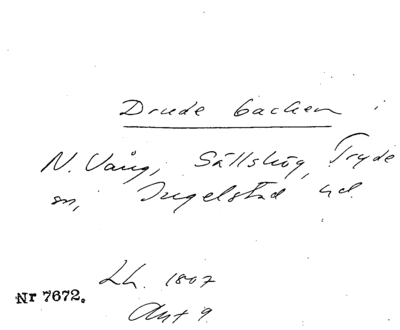 Drude backen
N. Vång, Sällshög, Tryde
sn, Ingelstad hd.
Lh. 1807
Akt 9.
Nr 7672.